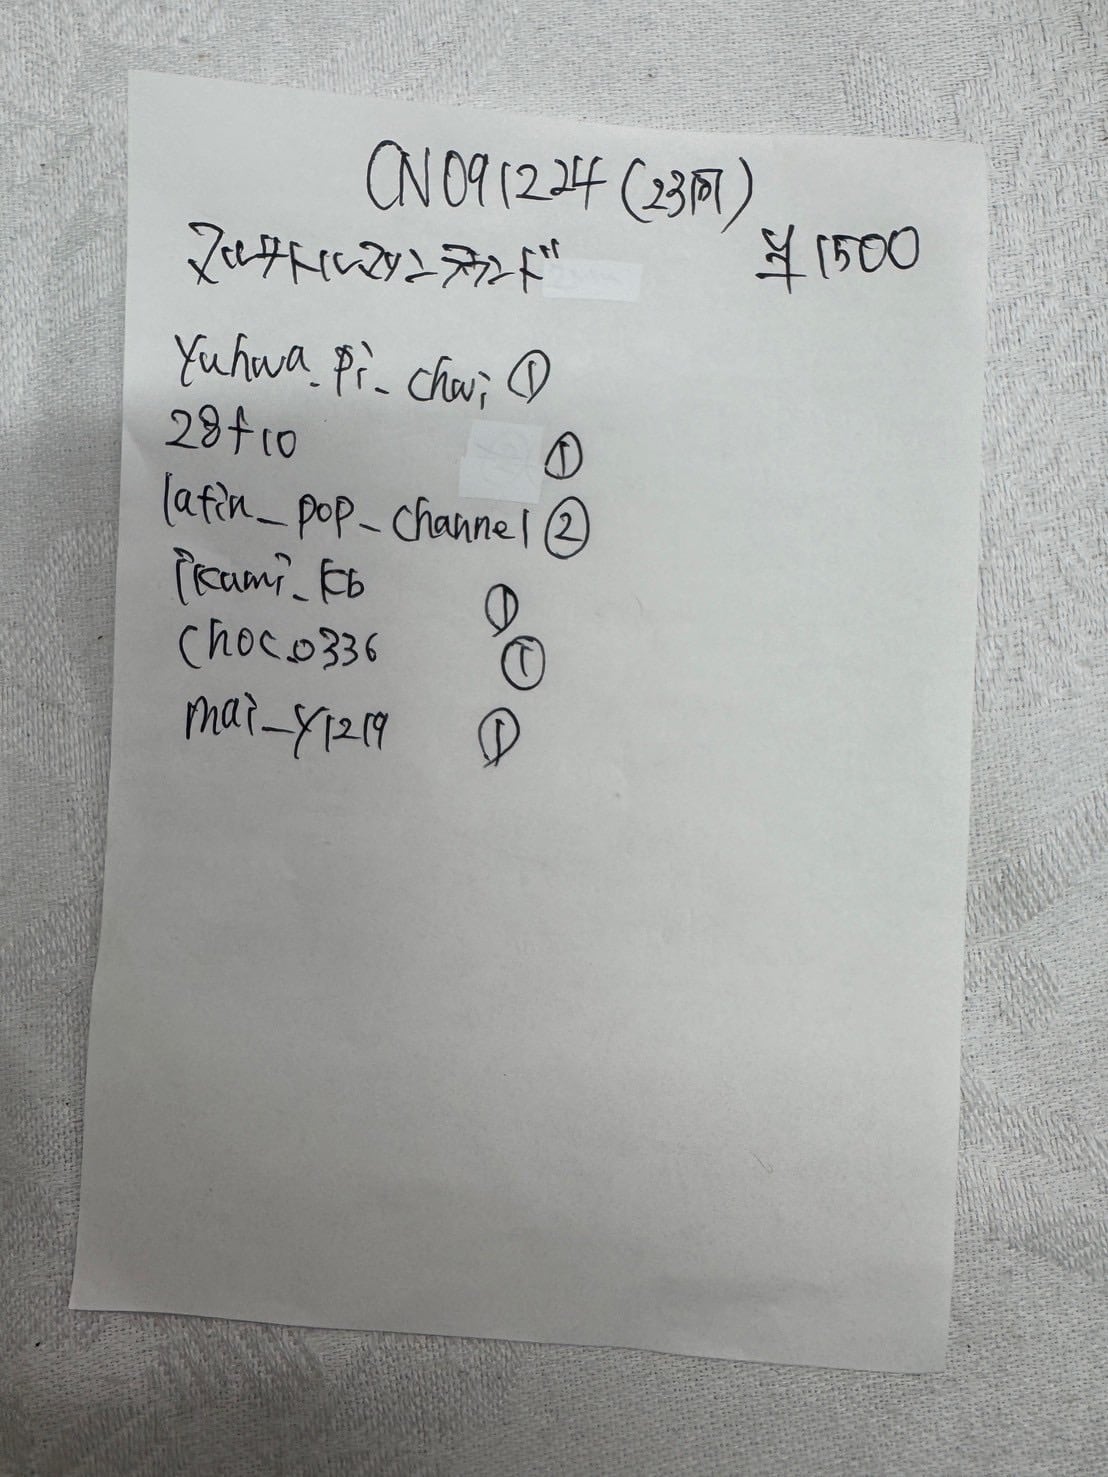 CN091224(23回)
¥1500
Yuhwa_pi_chai ①
28f10 ①
latin_pop_channel ②
ikumi_kb ①
choc.o336 ①
mai_y1219 ①